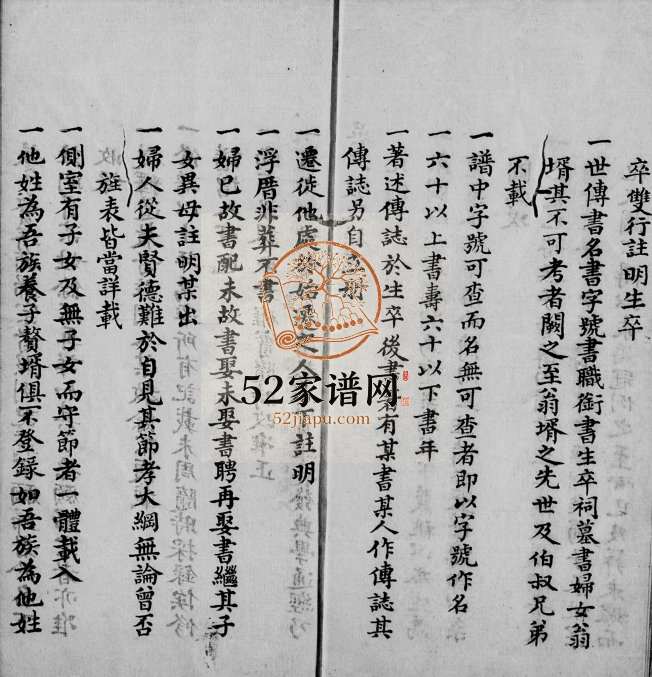 卒雙行註明生卒
一世傳書名書字號書職銜書生卒祠墓書婦女翁
壻其不可考者闕之至翁壻之先世及伯叔兄弟
不載
一譜中字號可查而名無可查者即以字號作名
一六十以上書壽六十以下書年
一著述傳誌於生卒後書有某書某人作傳誌其
傳誌另自
一遷徙他處於始遷之人下註明
一浮厝非葬不書
一婦已故書配未故書娶未娶書聘再娶書繼其子
女異母註明某出
一婦人從夫賢德難於自見其節孝大綱無論曾否
旌表皆當詳載
一側室有子女及無子女而守節者一體載入
一他姓為吾族養子贅壻俱不登錄如吾族為他姓
52家谱网
52jiapu.com